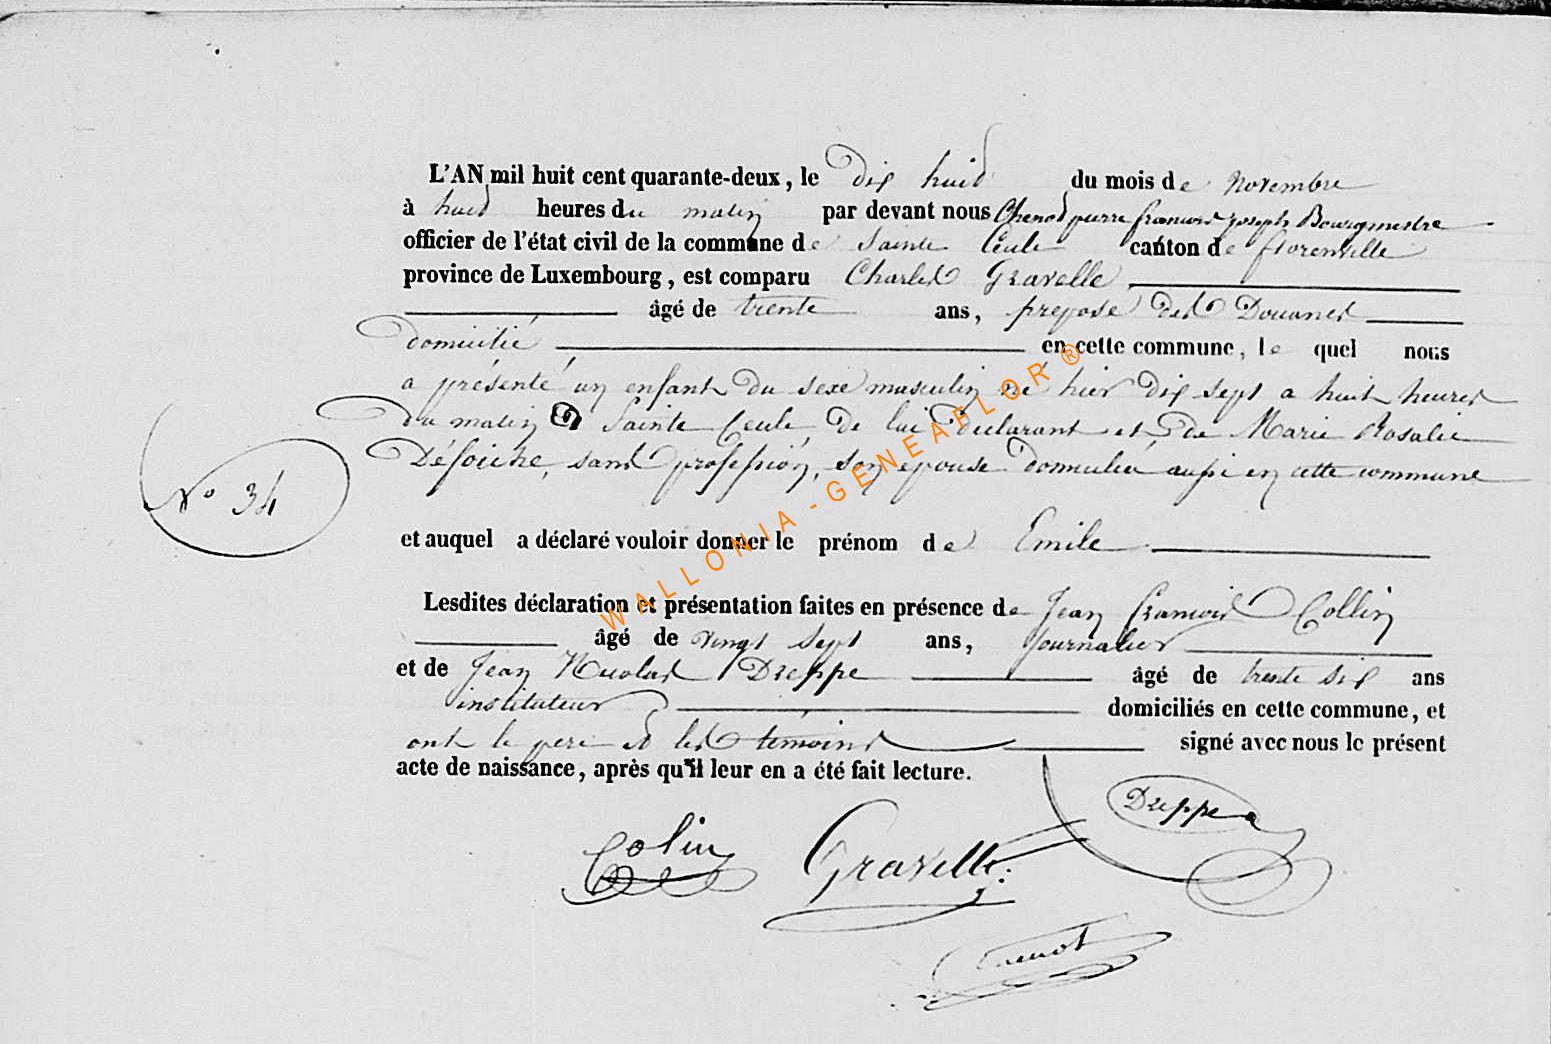 L'AN mil huit cent quarante-deux, le dix huit du mois de novembre
à huit heures du matin par devant nous Chenot pierre françois joseph Bourgmestre
officier de l'état civil de la commune de Sainte Cécile canton de florenville
province de Luxembourg, est comparu Charles Gravelle
âgé de trente ans, préposé des Douanes
domicilié en cette commune, le quel nous
a présenté un enfant du sexe masculin né hier dix sept a huit heures
du matin à Sainte Cécile, de lui déclarant et de Marie Rosalie
sans profession, son épouse domiciliée aussi en cette commune
N° 34
et auquel a déclaré vouloir donner le prénom de Emile
Lesdites déclaration et présentation faites en présence de Jean François Collin
âgé de vingt sept ans, journalier
et de Jean Nicolas Dreppe âgé de trente six ans
instituteur domiciliés en cette commune, et
ont le père et les témoins signé avec nous le présent
acte de naissance, après qu'il leur en a été fait lecture.
Dreppe
Colin Gravelle
Chenot
WALLONIA-GENEAFLOR®